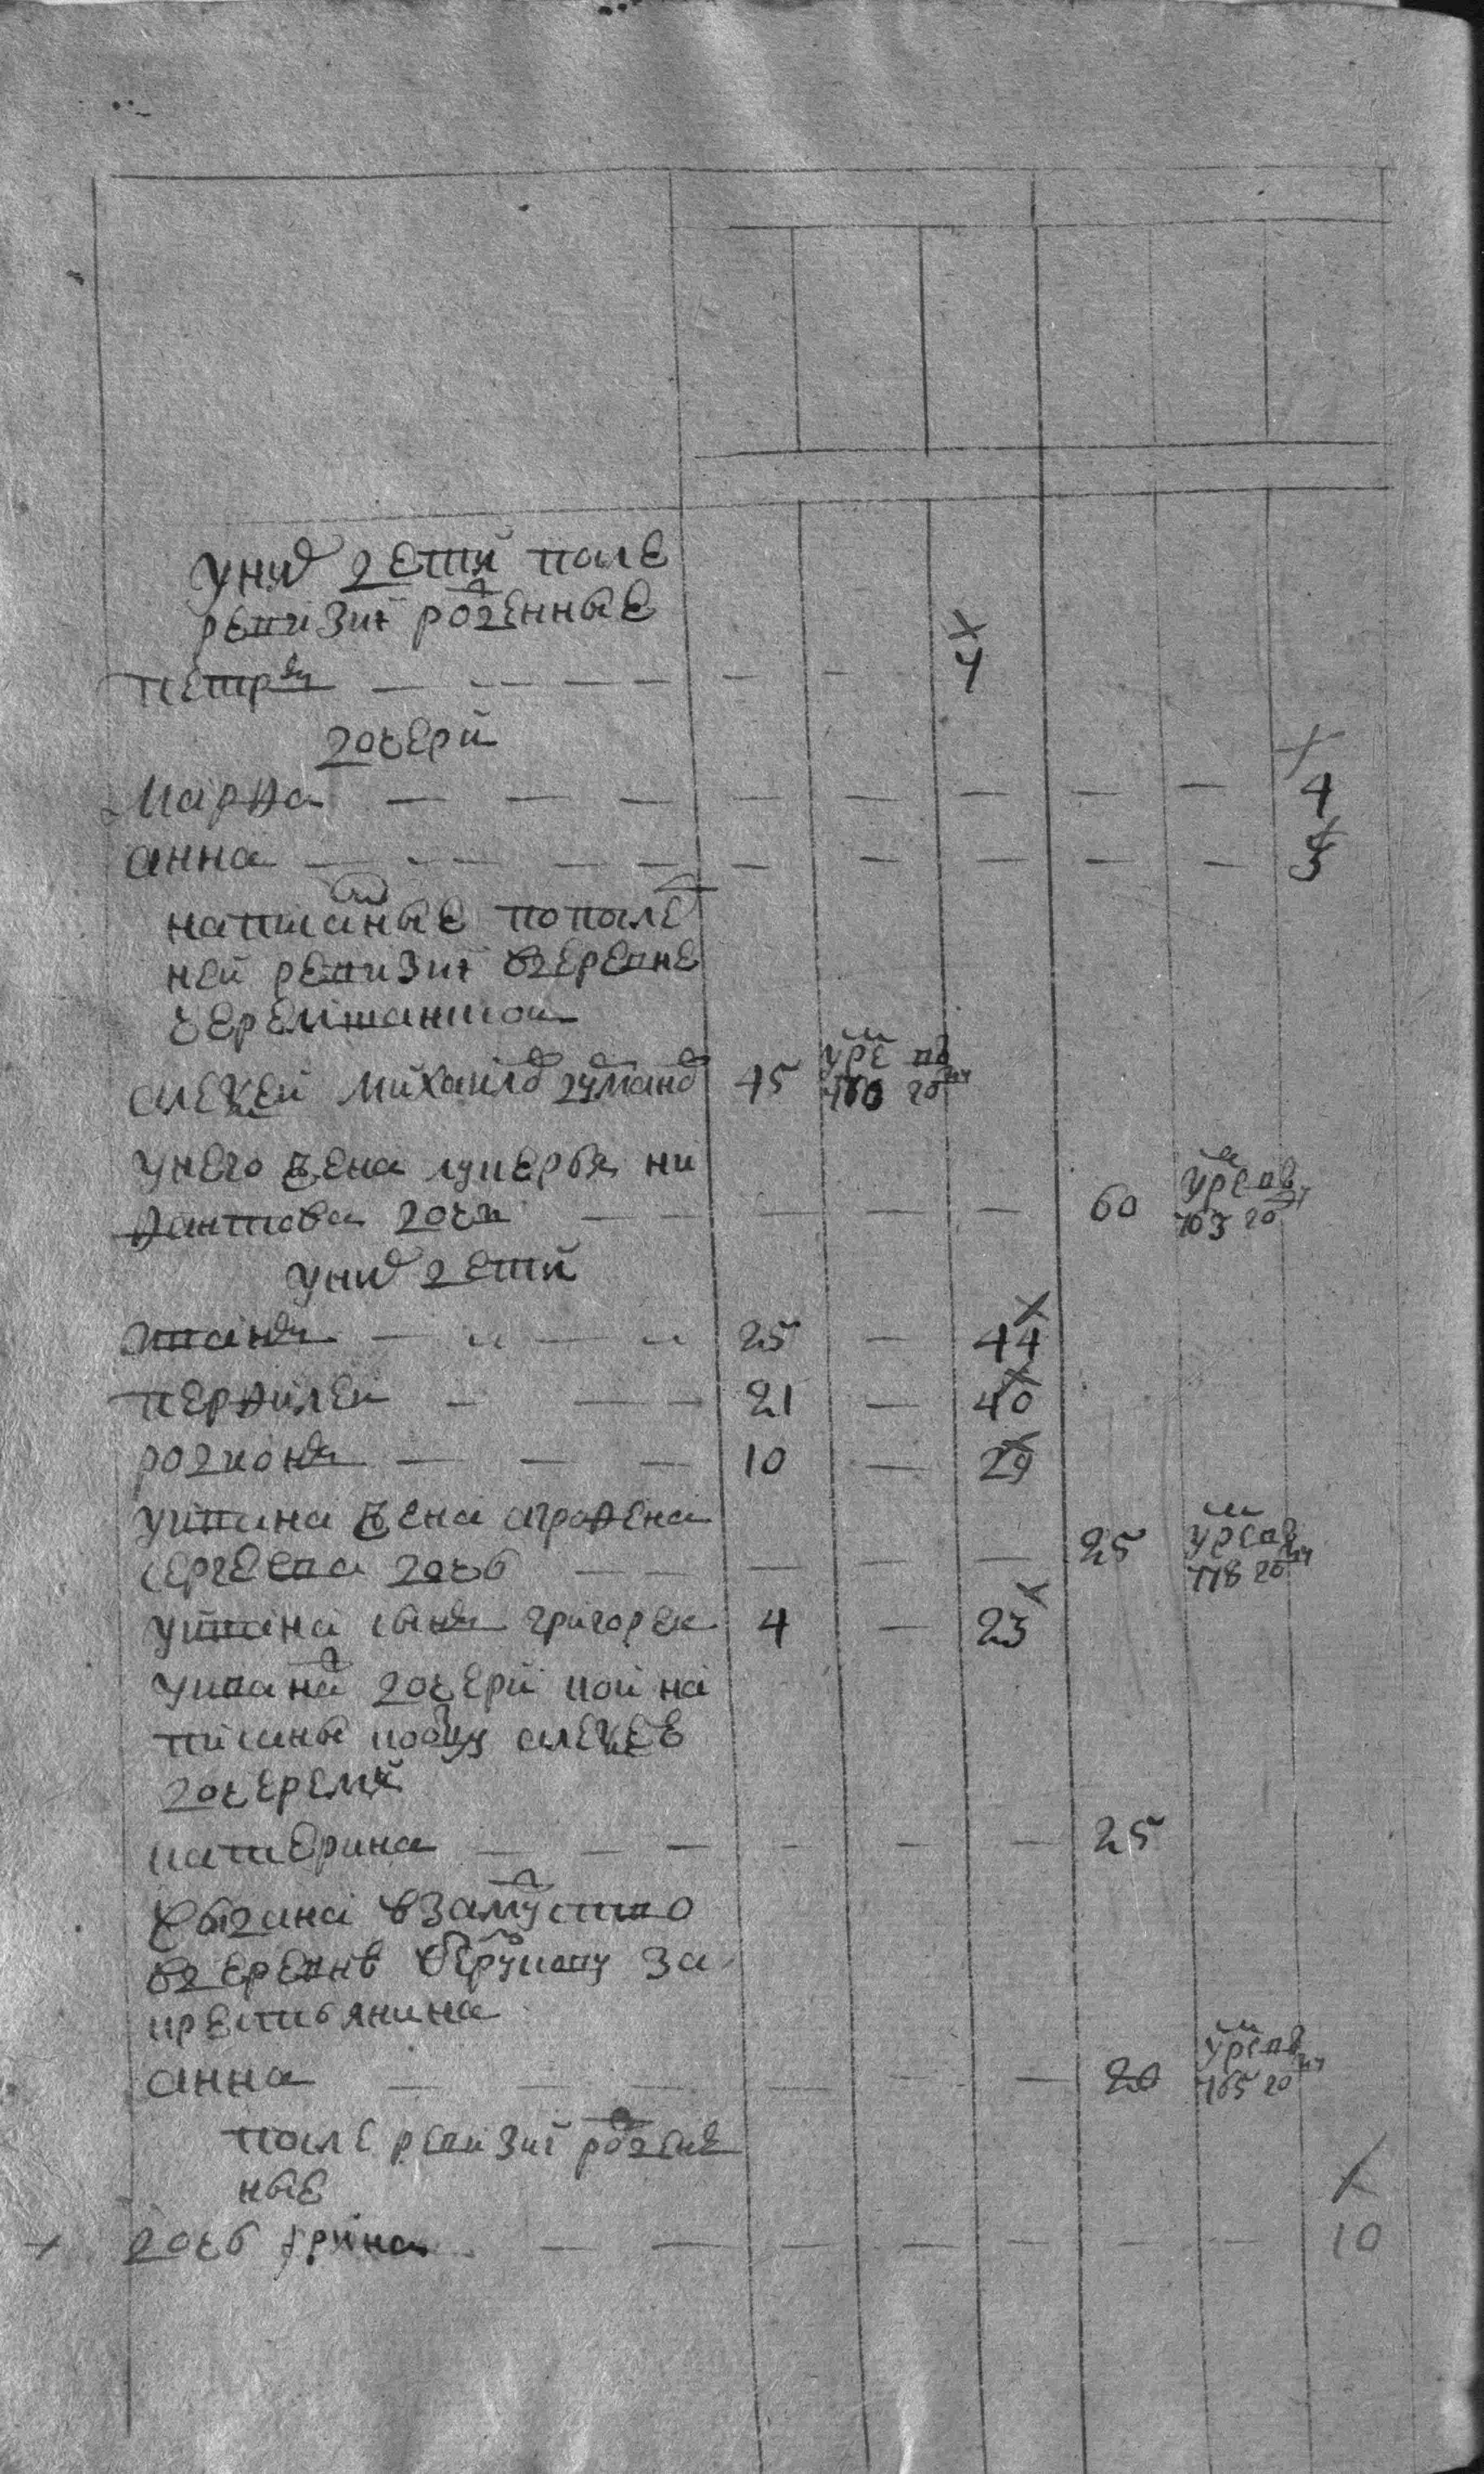 у них дети после
ревизиі рожденные
петръ — — — — — — 4
дочери
Марфа — — — — — — — — 4
анна — — — — — — — — 3
написаные по послед
ней ревизиі в деревне
черемшанской
алексей михайловъ 45 умре в 766 году
у него жена лукерья ни
фантова дочь — — — — — 60 умре в 763 году
у них дети
иванъ — — — — 25 — 44
перфилеи — — — 21 — 40
родионъ — — — 10 — 29
у ивана жена аграфена
сергеева дочь — — — — — 25 умре в 778 году
у ивана сынъ григореи 4 — 23
у ивана дочери кои на
писаны к отцу алексею
дочерeми
катерина — — — — — — 25
выдана в замужство
в деревню за
крестьянина
анна — — — — — 20 умре в 765 году
после ревизиі рожден
ные
дочь ірина — — — — — — — 10